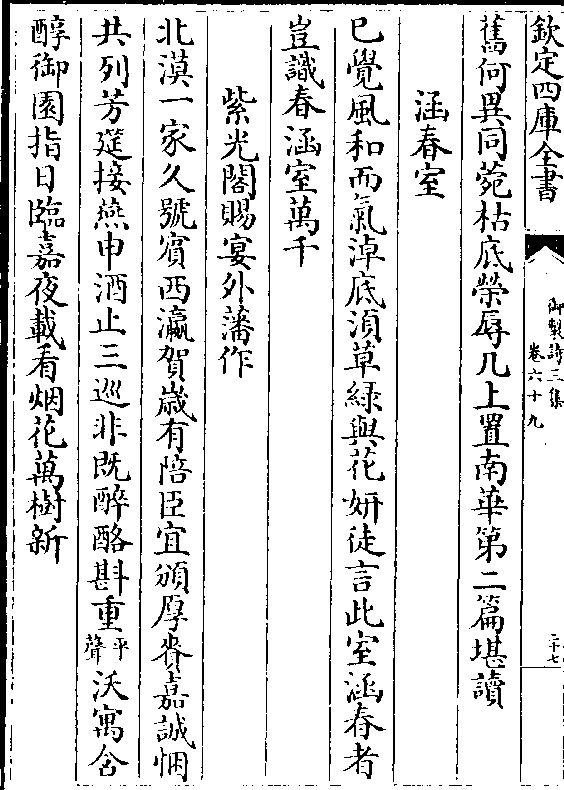 欽定四庫全書
御製詩三集
卷六十九
二十七
舊何異同菀枯底榮辱几上置南華第二篇堪讀
涵春室
已覺風和而氣淖底湏草綠與花妍徒言此室涵春者
豈識春涵室萬千
紫光閣賜宴外藩作
北漠一家久號賓西瀛賀歲有陪臣宜頒厚眷嘉誠悃
共列芳筵接燕申酒止三巡非既醉酪斟重平聲沃寓含
醇御園指日臨嘉夜載看烟花萬樹新